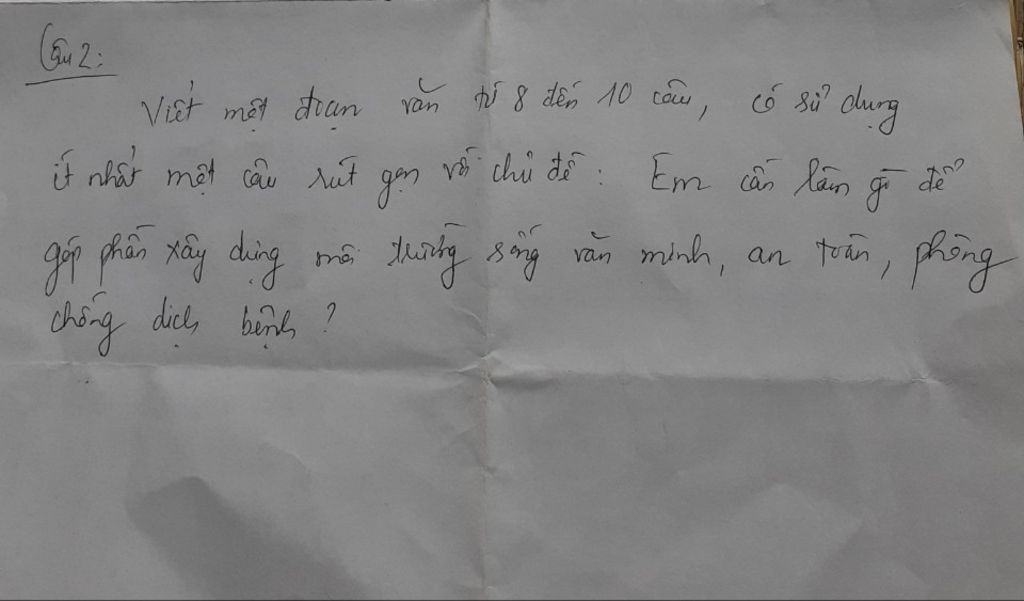 Câu 2:
Viết một đoạn văn từ 8 đến 10 câu, có sử dụng
ít nhất một câu rút gọn với chủ đề: Em cần làm gì để
góp phần xây dựng môi trường sống văn minh, an toàn, phòng
chống dịch bệnh?